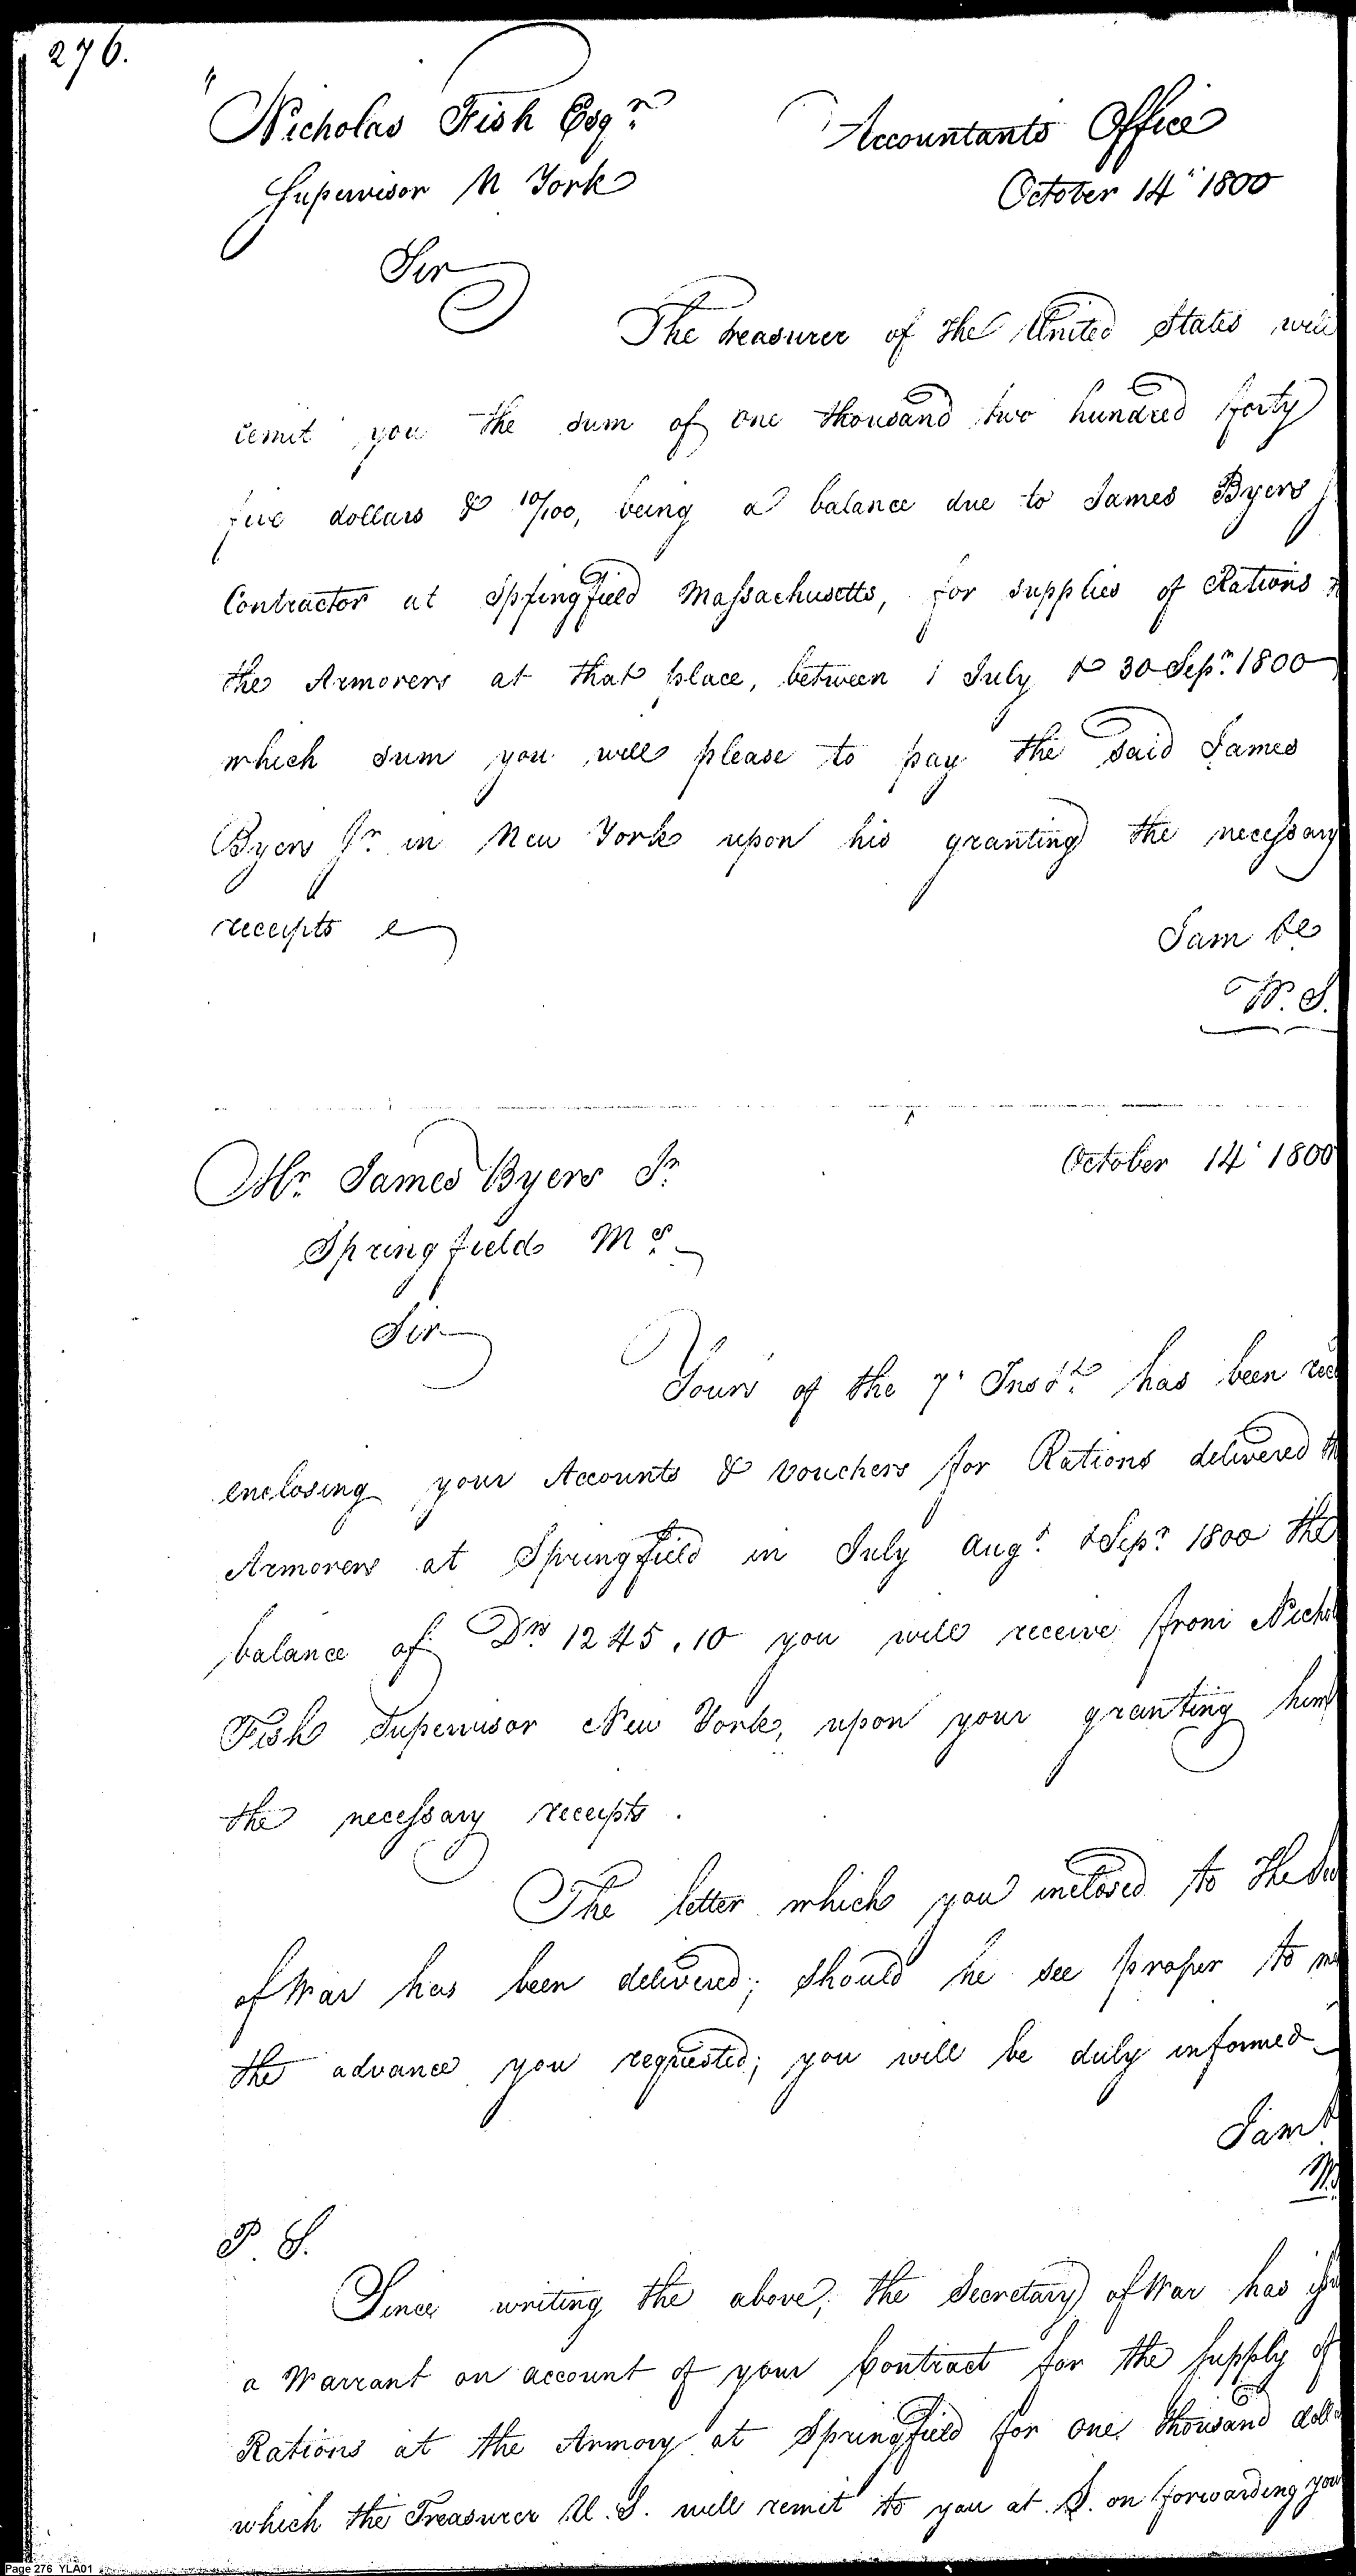 276.
Nicholas Fish Esqr. Accountants Office
Supervisor N York October 14 1800
Sir
The treasurer of the United States will
remit you the sum of one thousand two hundred forty
five dollars & 10/100, being a balance due to James Byers
Contractor at Springfield Massachusetts, for supplies of Rations
the Armorers at that place, between 1 July & 30 Sepr. 1800
which sum you will please to pay the said James
Byers Jr in New York upon his granting the necessary
receipts
I am &c
W. S.
Mr. James Byers Jr. October 14 1800
Springfield Ms.
Sir
Yours of the 7 Inst. has been rec
enclosing your Accounts & vouchers for Rations delivered th
Armorers at Springfield in July Augt. & Sepr. 1800 the
balance of Drs 1245.10 you will receive from Nichol
Fish Supervisor New York, upon your granting him
the necessary receipts.
The letter which you inclosed to the Se
of War has been delivered; should he see proper to m
the advance you requested; you will be duly informed
I am
W.
P. S.
Since writing the above, the Secretary of War has iss
a Warrant on account of your Contract for the supply of
Rations at the Armory at Springfield for one thousand dolla
which the Treasurer U. S. will remit to you at S. on forwarding you
Page 276 YLA01